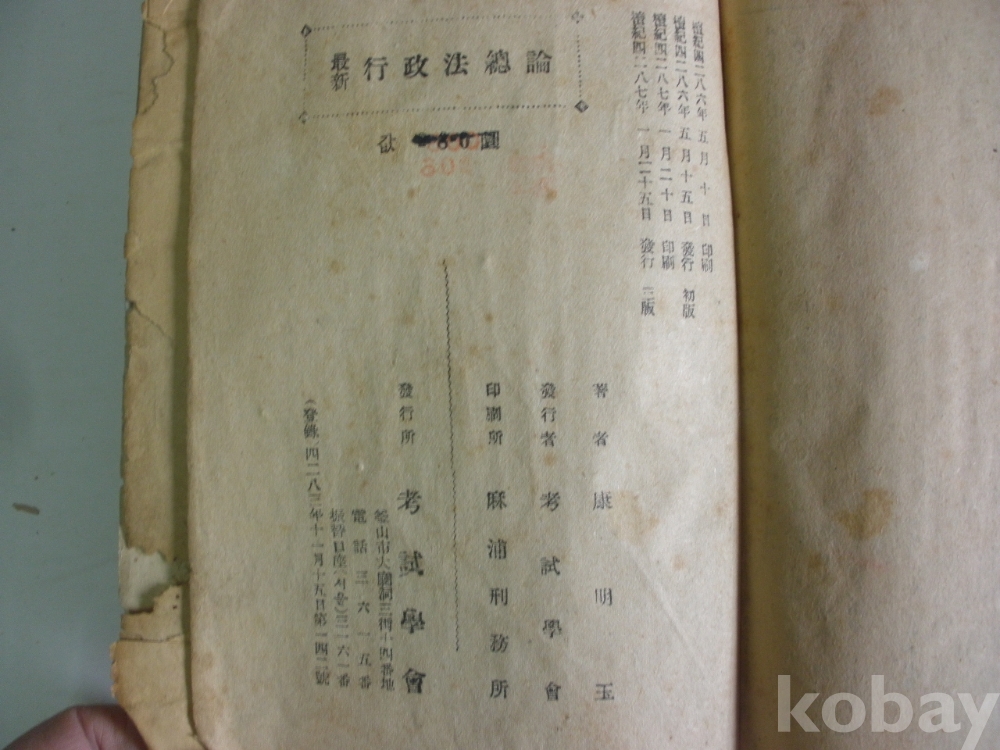 檀紀四二八六年五月十日 印刷
檀紀四二八六年五月十五日 發行 初版
檀紀四二八七年一月二十日 印刷
檀紀四二八七年一月二十五日 發行 三版
最新 行政法總論
값 80圓
著者 康明玉
發行者 考試學會
印刷所 麻浦刑務所
發行所 考試學會
釜山市大廟洞三街十四番地
電話 三六一五番
振替口座(서울)三一六一番
(登錄 四二八三年十一月十五日第一四二號
kobay